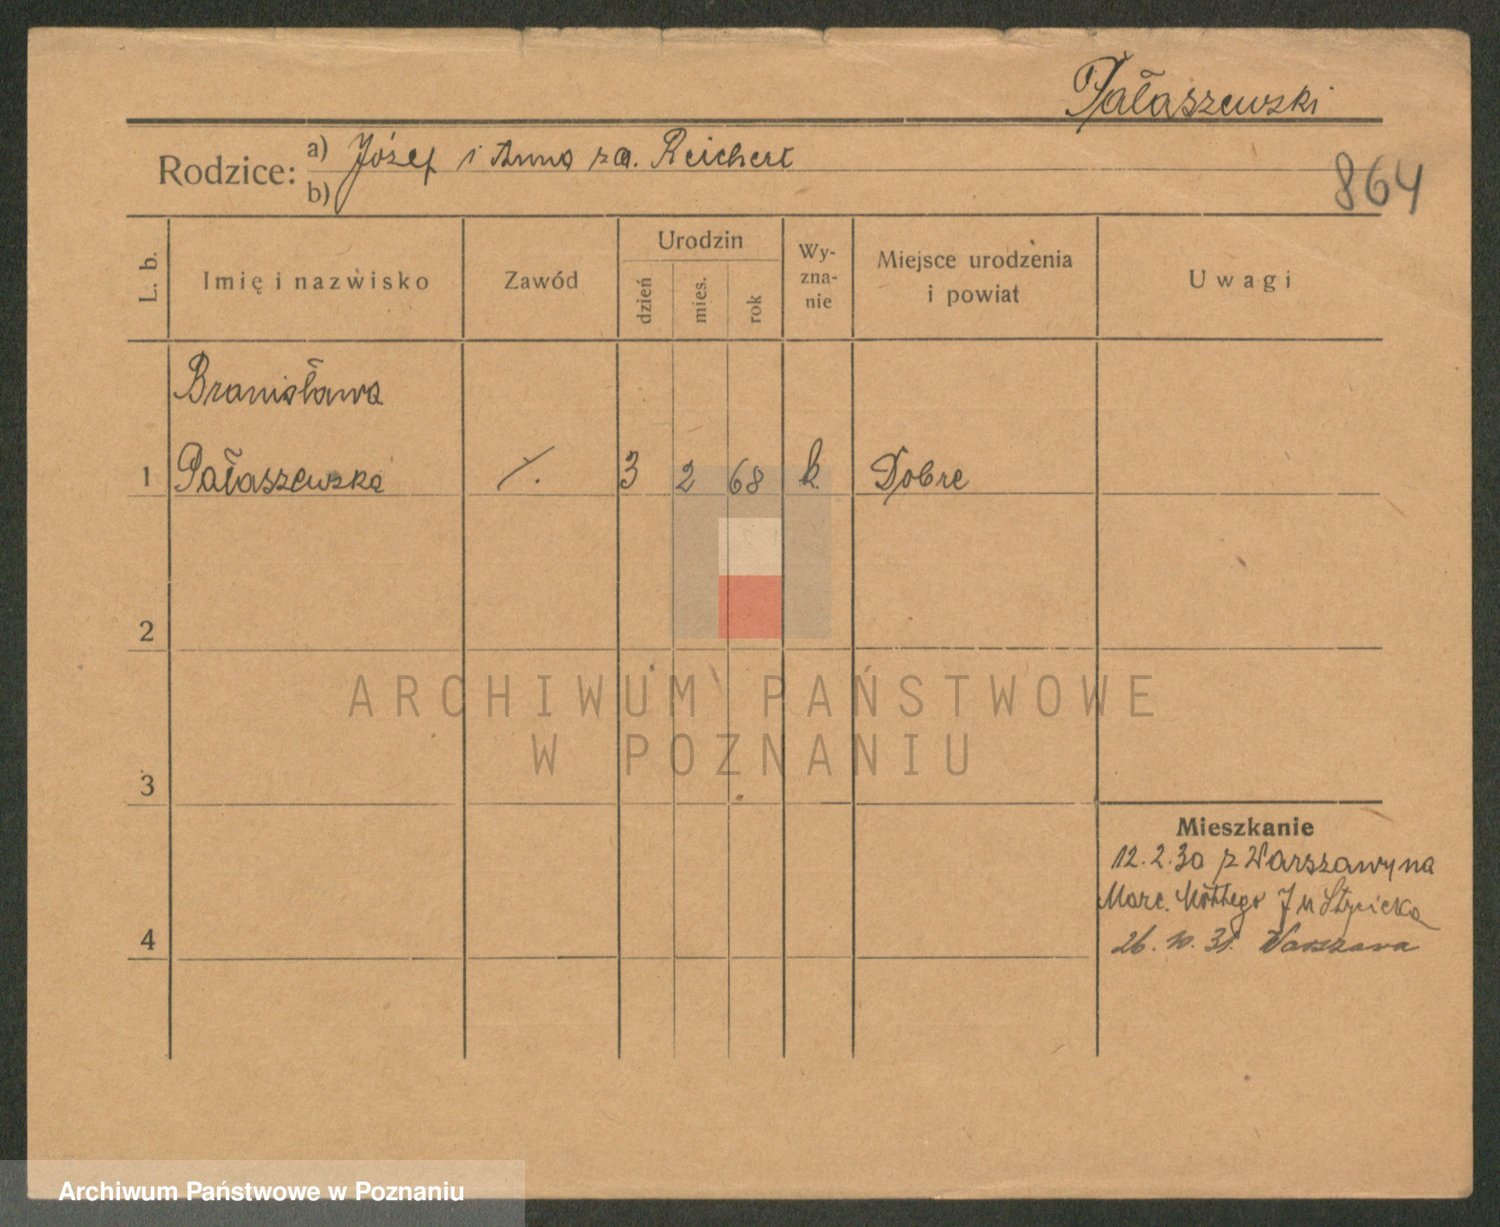 Pałaszewski
Rodzice: a) Józef i Anna za. Reichert
b)
864
L. b.
Imię i nazwisko
Zawód
Urodzin
dzień
mies.
rok
Wy-
zna-
nie
Miejsce urodzenia
i powiat
Uwagi
Bronisława
1 Pałaszewska 3 2 68 k. Dobre
2
ARCHIWUM PAŃSTWOWE
W POZNANIU
3
Mieszkanie
12.2.30 z Warszawy na
Marc. Mottego
4
26.10.31. Warszawa
Archiwum Państwowe w Poznaniu